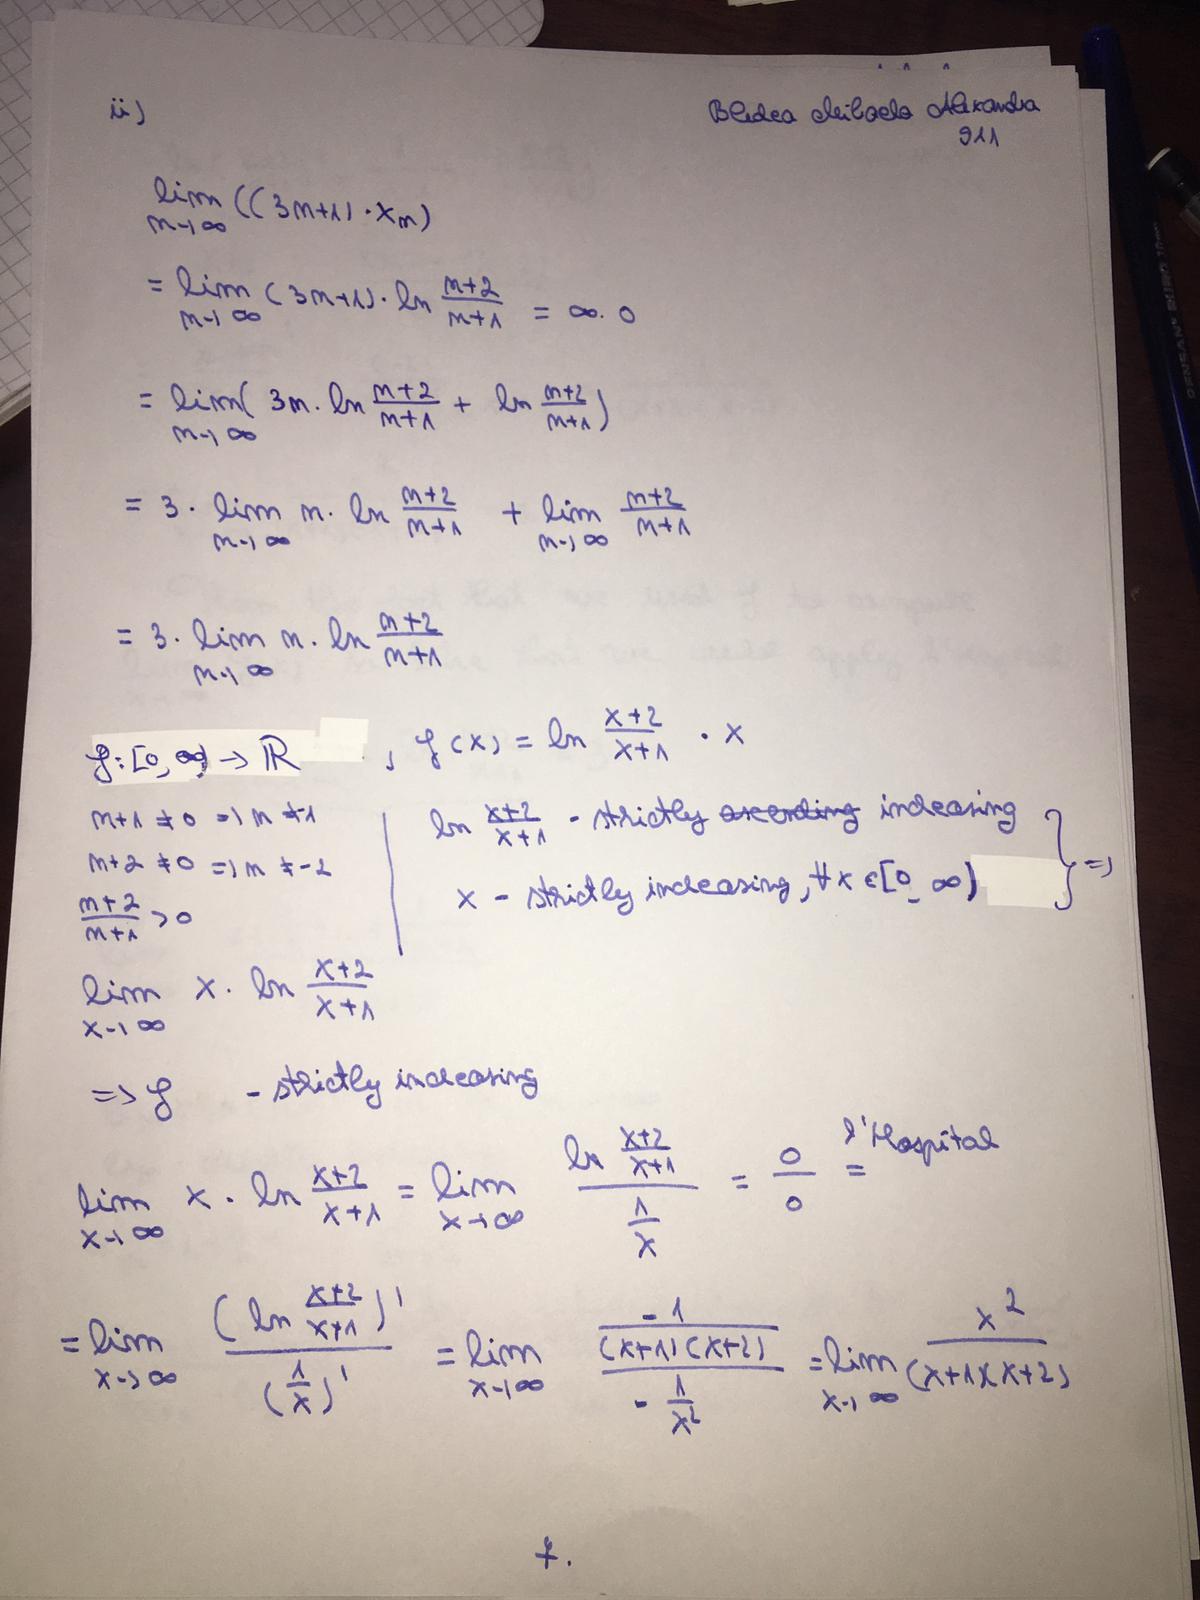 ii)
Bledea Mihaela Alexandra
911
lim n→∞ ((3n+1)·x_n)
= lim n→∞ (3n+1)·ln (n+2)/(n+1) = ∞·0
= lim n→∞ (3n·ln (n+2)/(n+1) + ln (n+2)/(n+1))
= 3· lim n→∞ n·ln (n+2)/(n+1) + lim n→∞ (n+2)/(n+1)
= 3· lim n→∞ n·ln (n+2)/(n+1)
f:[0,∞) → ℝ , f(x) = ln (x+2)/(x+1) · x
n+1 ≠ 0 => n ≠ -1
n+2 ≠ 0 => n ≠ -2
(n+2)/(n+1) > 0
ln (x+2)/(x+1) - strictly ascending increasing
x - strictly increasing, ∀x∈[0,∞) } =>
lim x→∞ x·ln (x+2)/(x+1)
=> f - strictly increasing
lim x→∞ x·ln (x+2)/(x+1) = lim x→∞ (ln (x+2)/(x+1))/(1/x) = 0/0 = l'Hospital
= lim x→∞ (ln (x+2)/(x+1))'/(1/x)' = lim x→∞ (-1/((x+1)(x+2)))/(-1/x²) = lim x→∞ x²/((x+1)(x+2))
7.